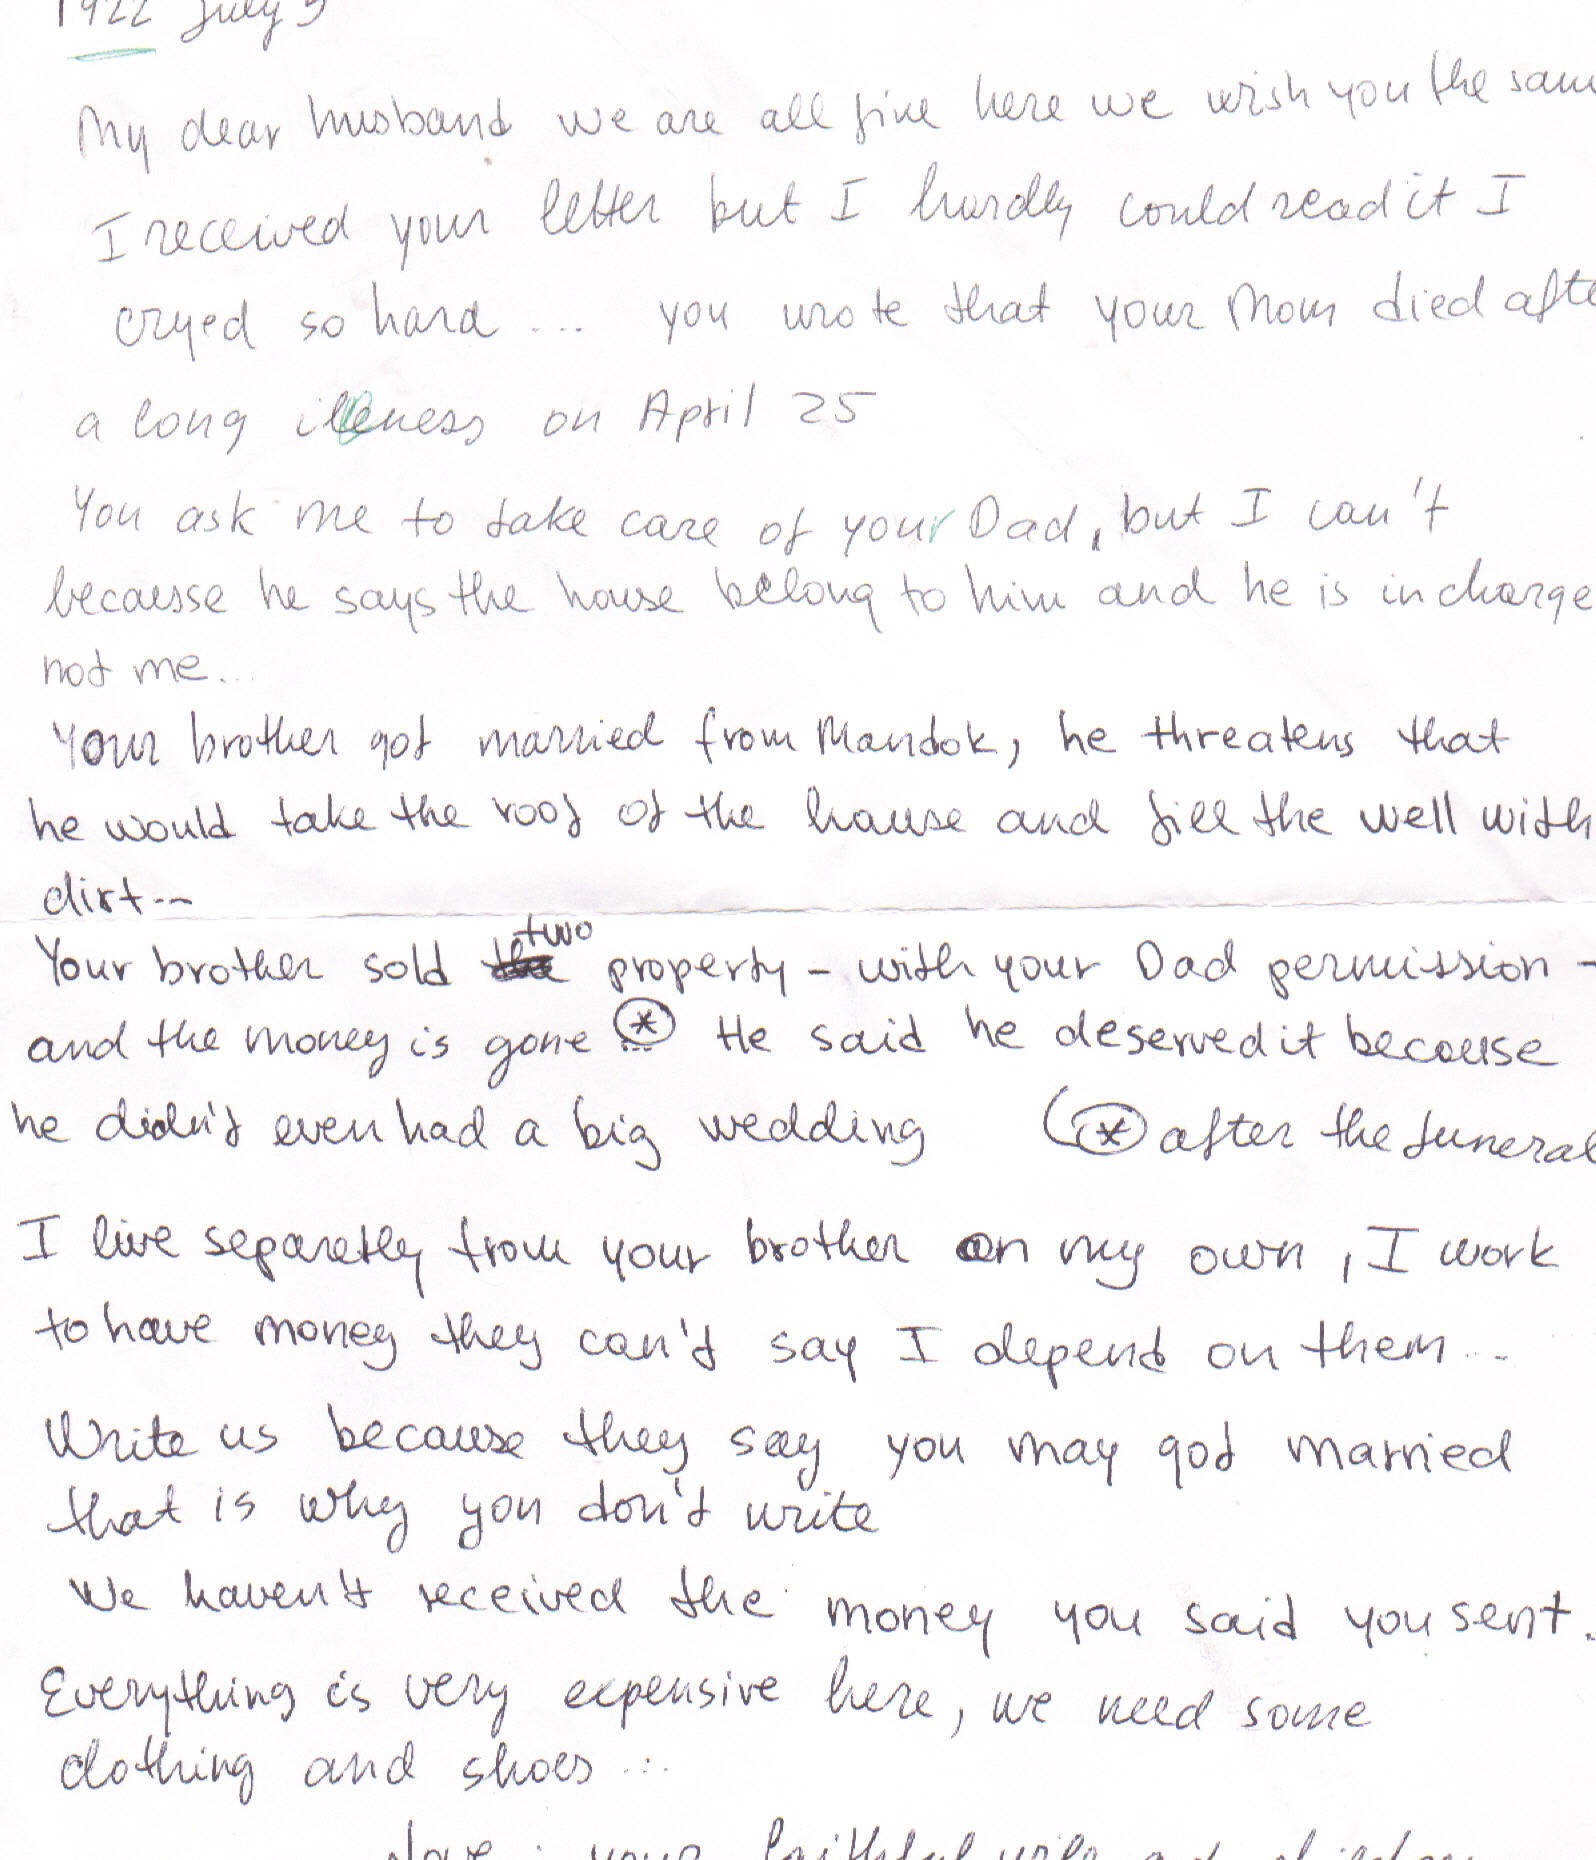 1922 July 5
My dear husband we are all fine here we wish you the sam
I received your letter but I hardly could read it I
cryed so hard ... you wrote that your Mom died afte
a long illness on April 25
You ask me to take care of your Dad, but I can't
becausse he says the house belong to him and he is in charge
not me...
Your brother got married from Mandok, he threatens that
he would take the roof of the hause and fill the well with
dirt...
two
Your brother sold property - with your Dad permission -
and the money is gone * ... He said he deserved it because
he didn't even had a big wedding (* after the funeral
I live separetly from your brother on my own, I work
to have money they can't say I depend on them...
Write us because they say you may got married
that is why you don't write
We haven't received the money you said you sent.
Everything is very expensive here, we need some
clothing and shoes ...
Love: your faithful wife and